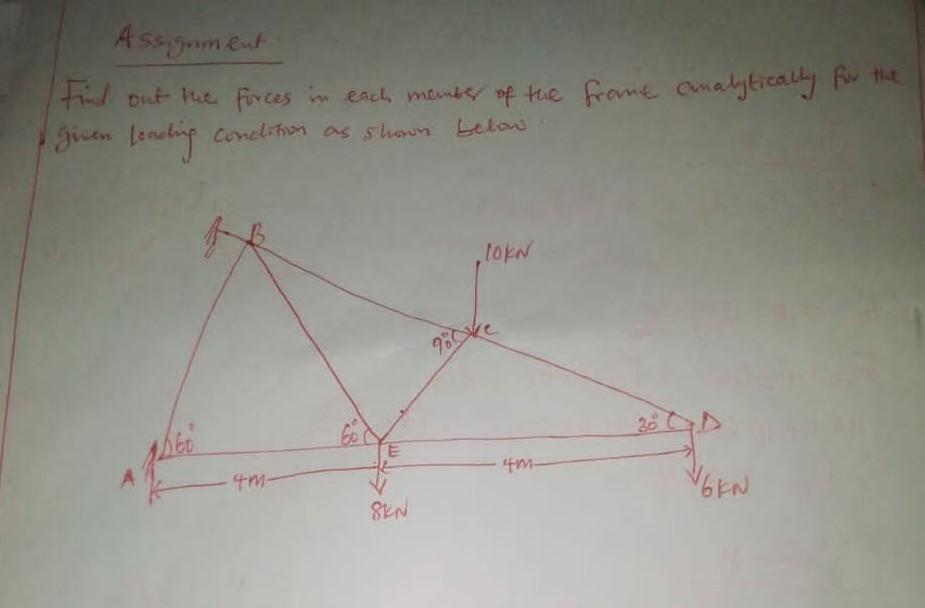 Assignment
Find out the forces in each member of the frame analytically for the
given loading condition as shown below.
B
10KN
C
90°
60°
60°
30°
D
E
A
4m
4m
8KN
6KN